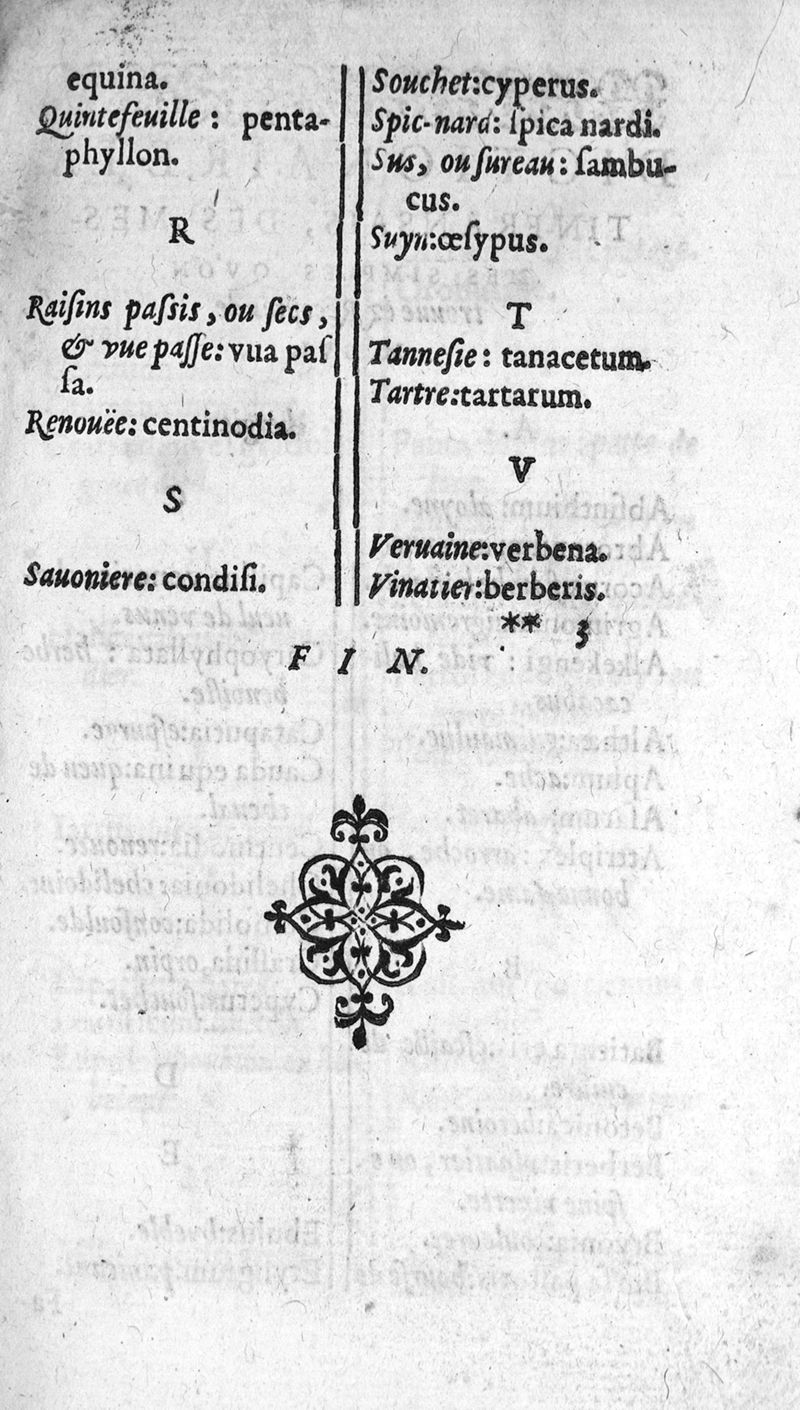 equina.
Quintefeuille : penta-
phyllon.
R
Raiſins paſsis, ou ſecs,
& vue paſſe: vua paſ
ſa.
Renouëe: centinodia.
S
Sauoniere: condiſi.
Souchet:cyperus.
Spic-nard: ſpica nardi.
Sus, ou ſureau : ſambu-
cus.
Suyn:œſypus.
T
Tanneſie : tanacetum.
Tartre:tartarum.
V
Veruaine:verbena.
Vinatier:berberis.
** 3
F I N.